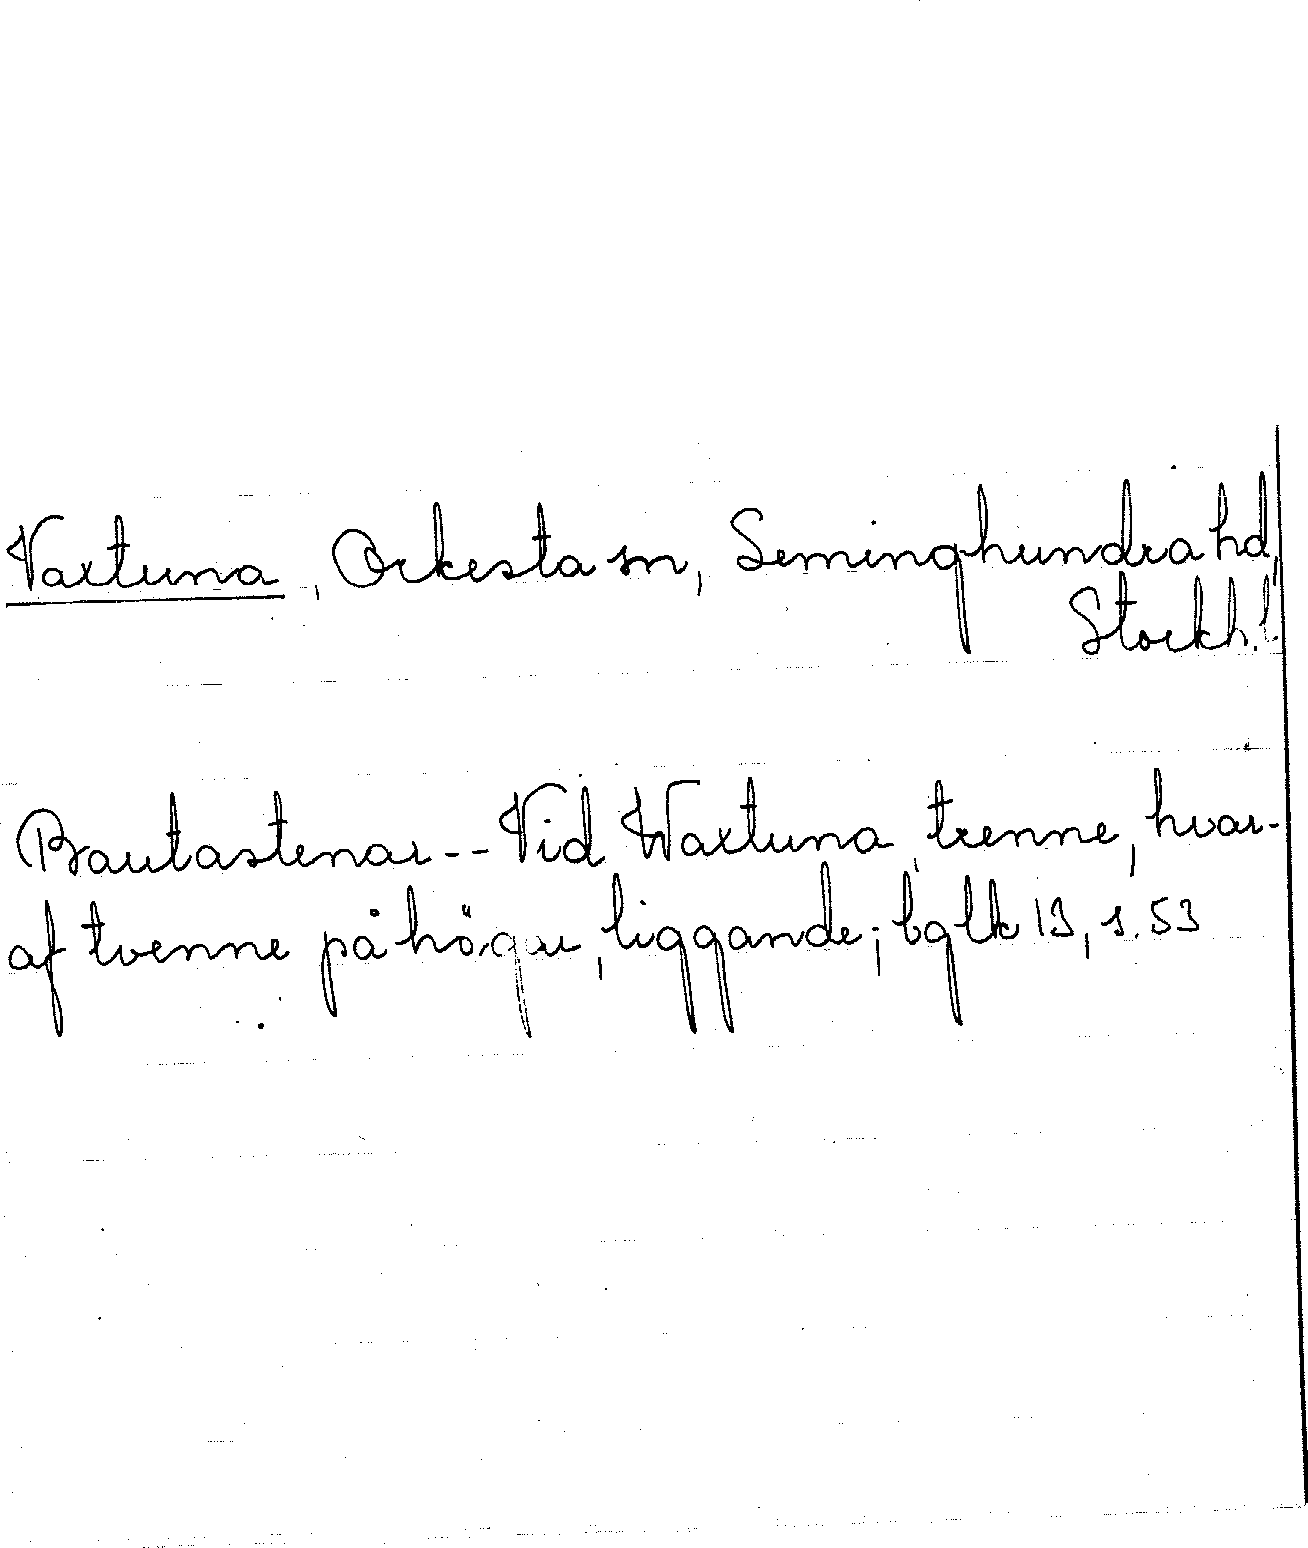 Vaxtuna, Orkesta sn, Seminghundra hd,
Stockh. l.
Bautastenar -- Vid Waxtuna, trenne, hvar-
af tvenne på högar, liggande; bglk 13, s. 53